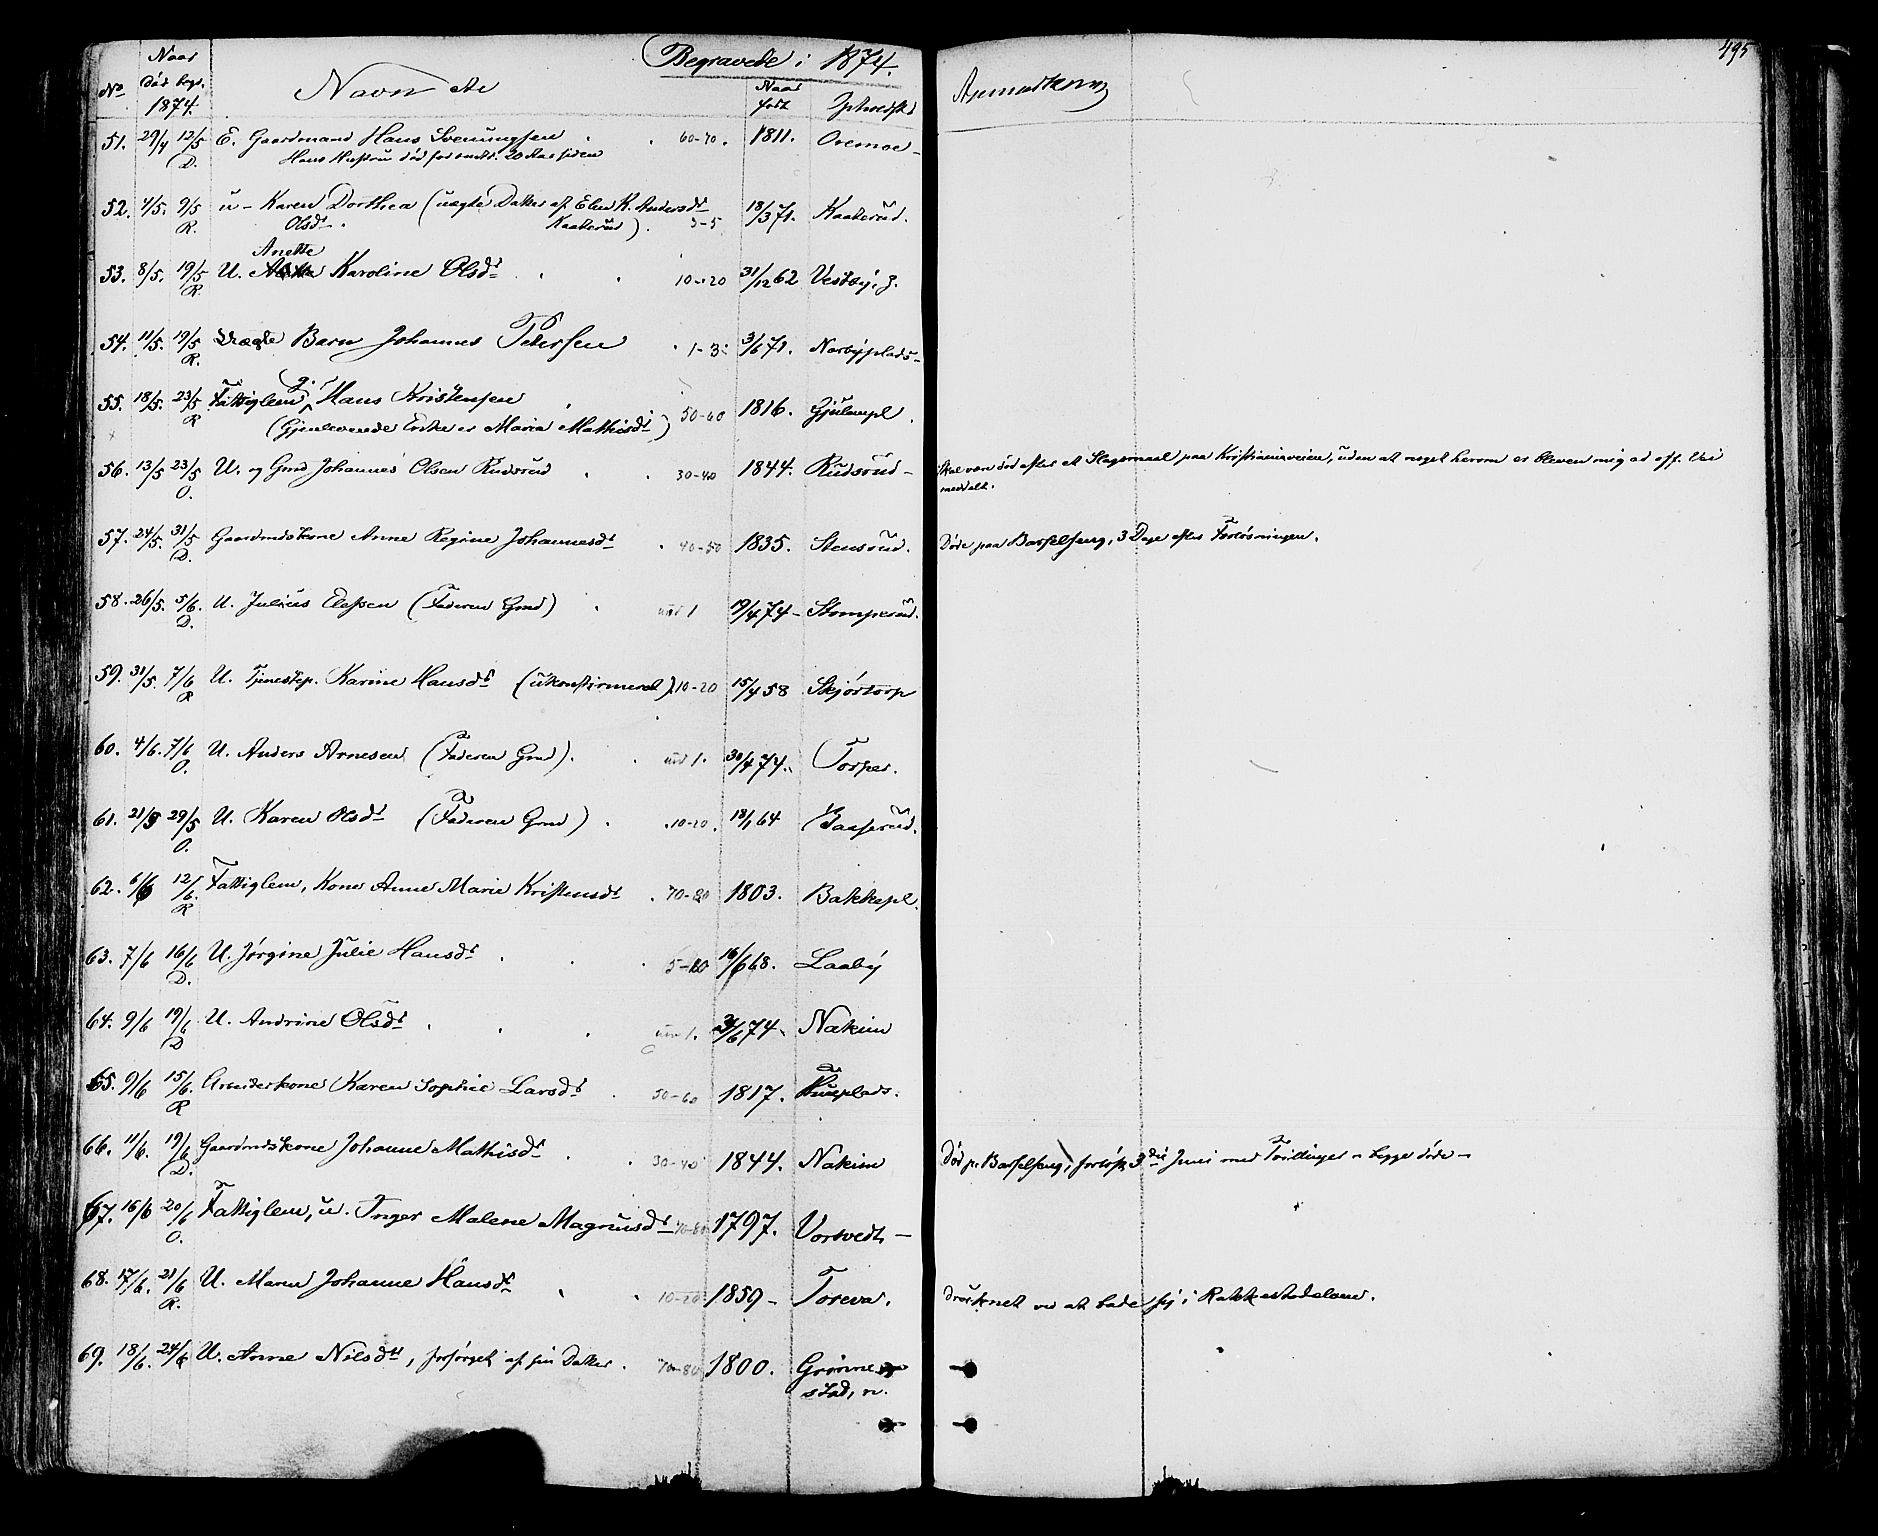 Begravede i 1874.
495
No Naar Død begr. 1874. Navn etc Naar født Opholdsst. Anmærkning
51. 29/4 12/5 E. Gaardmand Hans Svenungsen 60-70. 1811. Oremoe
D. Hans Hustru død for omtr. 20 Aar siden
52. 4/5. 9/5 u - Karen Dorthea (uægte Datter af Elen K. Andersdt 18/3 71. Kaaterud.
R. Olsdt. Kaaterud). 3-5
Anette
53. 8/5. 19/5 U. Karoline Olsdt 10-20 31/12 62 Vestby, g.
R.
54. 11/5. 19/5 Uægte Barn Johannes Petersen 1-3 3/6 71. Narbyplads
R.
55. 18/5. 23/5 Fattiglem g. Hans Kristensen 50-60 1816. Gjulempl.
R (Gjenlevende Enke er Maria Mathisdt)
56. 13/5 23/5 U. og Gmd Johannes Olsen Rudsrud 30-40 1844. Rudsrud - Skal være død efter et Slagsmaal paa Kristianiaveien, uden at noget herom er bleven mig ad off. Vei
O. meddelt.
57. 24/5. 31/5 Gaardmdskone Anne Regine Johannesdt 40-50 1835. Stensrud. Døde paa Barselseng, 3 Dage efter Forløsningen.
D.
58. 26/5. 5/6. U. Julius Elefsen (Faderen Gmd) und 1 19/4 74 - Stomperud.
D.
59. 31/5. 7/6 U. Tjenestep. Karine Hansdt (ukonfirmeret). 10-20 15/4 58 Skjørtorp
R
60. 4/6. 7/6 U. Anders Arnesen (Faderen Gmd). und 1. 30/4 74. Torper.
O.
61. 21/5 29/5 U. Karen Olsdt (Faderen Gmd). 10-20. 18/1 64 Baaserud.
O.
62. 6/6 12/6. Fattiglem, Kone Anne Marie Kristensdt 70-80 1803. Bakkepl.
R
63. 7/6 16/6 U. Jørgine Julie Hansdt 5-10 16/6 68. Laaby
D.
64. 9/6 19/6 U. Andrine Olsdt und 1. 2/6 74. Nakim
D
65. 9/6 15/6. Arbeiderkone Karen Sophie Larsdt 50-60 1817. Huusplads.
R
66. 11/6. 19/6 Gaardmdskone Johanne Mathisdt 30-40 1844. Nakim Død p. Barselseng, forløst 3die Juni med Tvillinger - begge døde -
D.
67. 16/6 20/6 Fattiglem, u. Inger Malene Magnusdt 70-80 1797. Vorvedt -
O.
68. 17/6. 21/6 U. Maren Johanne Hansdt 10-20 1859 - Toreva. Druknet ved at bade sig i Rakkestadelven.
R.
69. 18/6. 24/6 U. Anne Nilsdtr, forsørget af sin Datter. 70-80 1800. Grønne
stad, n.